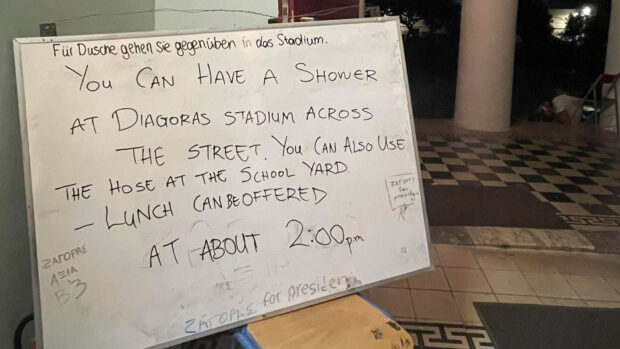 Für Dusche gehen Sie gegenüben in das Stadium.
YOU CAN HAVE A SHOWER
AT DIAGORAS STADIUM ACROSS
THE STREET. YOU CAN ALSO USE
THE HOSE AT THE SCHOOL YARD.
- LUNCH CAN BE OFFERED
AT ABOUT 2:00 pm
ΖΑΓΟΡΑΣ
ΑΞΙΑ
Β3
ΖΑΓΟΡΑΣ for president
ΖΑΓΟΡΑΣ
for